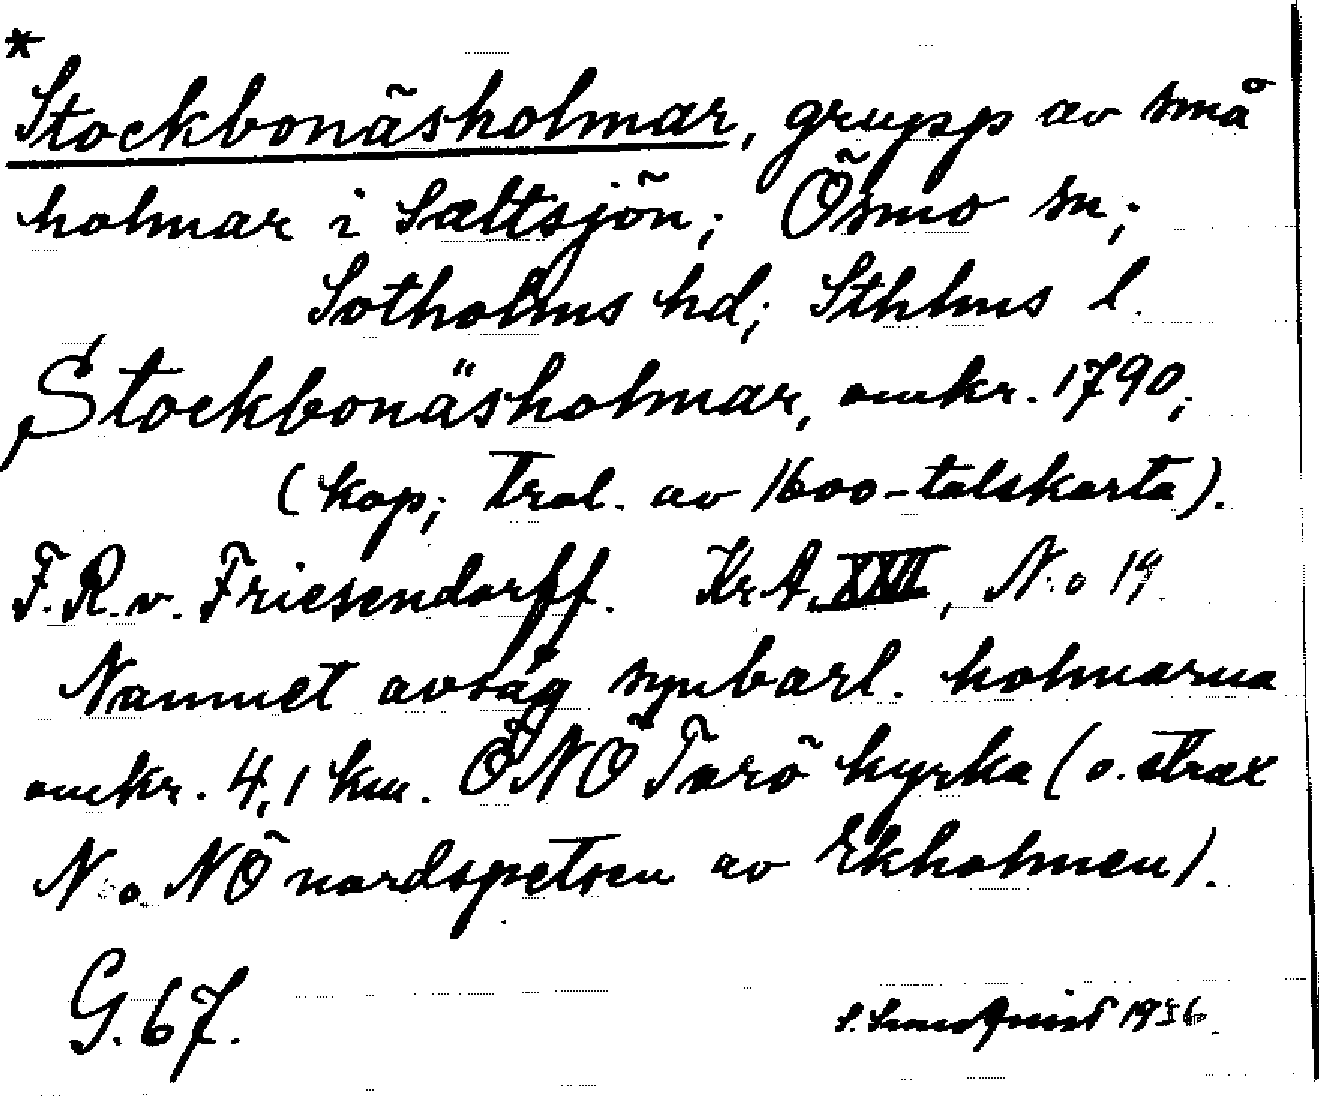 *
Stockbonäsholmar, grupp av små
holmar i Saltsjön; Ösmo sn;
Sotholms hd; Sthlms l.
Stockbonäsholmar, omkr. 1790;
(kop; trol. av 1600-talskarta).
F.R.v. Friesendorff. Kr.A. XXII, N:o 19
Namnet avsåg synbarl. holmarna
omkr. 4,1 km. ÖNÖ Torö kyrka (o. strax
N. o NÖ nordspetsen av Ekholmen).
G. 67.
1936